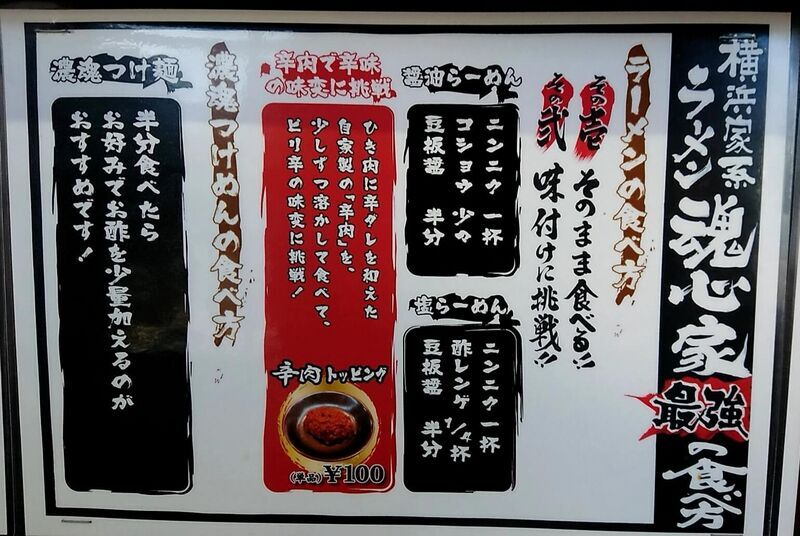 横浜家系
ラーメン魂心家
最強
の食べ方
ラーメンの食べ方
その壱
そのまま食べる!!
その弐
味付けに挑戦!!
醤油らーめん
ニンニク 一杯
コショウ 少々
豆板醤 半分
塩らーめん
ニンニク 一杯
酢レンゲ 1/4杯
豆板醤 半分
辛肉で辛味
の味変に挑戦
ひき肉に辛ダレを和えた
自家製の「辛肉」を、
少しずつ溶かして食べて、
ピリ辛の味変に挑戦!
辛肉トッピング
(単品)¥100
濃魂つけめんの食べ方
濃魂つけ麺
半分食べたら
お好みでお酢を少量加えるのが
おすすめです!